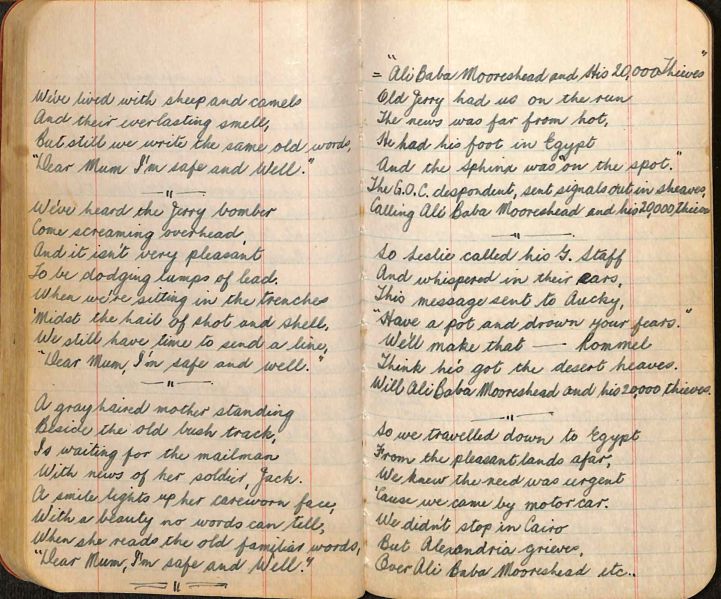 We've lived with sheep and camels
And their everlasting smell,
But still we write the same old words,
"Dear Mum I'm safe and Well."
We've heard the Jerry bomber
Come screaming overhead,
And it isn't very pleasant
To be dodging lumps of lead.
When we're sitting in the trenches
'Midst the hail of shot and shell,
We still have time to send a line,
"Dear Mum, I'm safe and well."
A grayhaired mother standing
Beside the old bush track,
Is waiting for the mailman
With news of her soldier, Jack.
A smile lights up her careworn face,
With a beauty no words can tell,
When she reads the old familiar words,
"Dear Mum, I'm safe and Well."
= "Ali Baba Mooreshead and His 20,000 Thieves"
Old Jerry had us on the run
The news was far from hot,
He had his foot in Egypt
And the Sphinx was "on the spot."
The G.O.C. despondent, sent signals out in sheaves,
Calling Ali Baba Mooreshead and his 20,000 Thieves
So Leslie called his G. Staff
And whispered in their ears,
This message sent to Aucky,
"Have a pot and drown your fears."
We'll make that — Rommel
Think he's got the desert heaves.
Will Ali Baba Mooreshead and his 20000 thieves.
So we travelled down to Egypt
From the pleasant lands afar,
We knew the need was urgent
'Cause we came by motor car.
We didn't stop in Cairo
But Alexandria grieves,
Over Ali Baba Mooreshead etc..